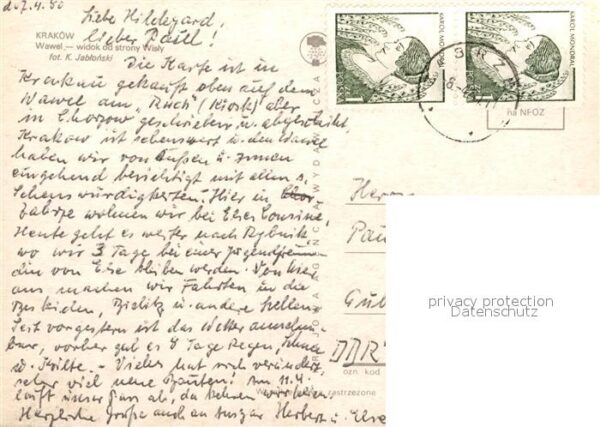 d. 7.4.80
Liebe Hildegard,
Lieber Paul!
KRAKÓW
Wawel — widok od strony Wisły
fot. K. Jabłoński
Die Karte ist in
Krakau gekauft oben auf dem
Wawel am "Ruch" (Kiosk) aber
in Chorzow geschrieben u. abgeschickt
Krakow ist sehenswert u. den Wawel
haben wir von Außen u. Innen
eingehend besichtigt mit allen s.
Sehenswürdigkeiten. Hier in
Zabrze wohnen wir bei Elses Cousine,
Heute geht es weiter nach Rybnik
wo wir 3 Tage bei einer Jugendfreun-
din von Else bleiben werden. Von hier
aus machen wir Fahrten in die
Beskiden, Bielitz u. andere Stellen
Seit vorgestern ist das Wetter annehm-
bar, vorher gab es 4 Tage Regen, Schnee
u. Kälte. - Vieles hat sich verändert,
sehr viel neue Bauten! Am 11.4.
läuft unser Pass ab, da kehren wir heim.
Herzliche Grüße auch an Ansgar Herbert u. Else
KAROL MONDRAL
KAROL MONDRAL
na NFOZ
KRAJOWA AGENCJA WYDAWNICZA
Herrn
Pau
Gub
DDR
ozn. kod
zastrzeżone
privacy protection
Datenschutz